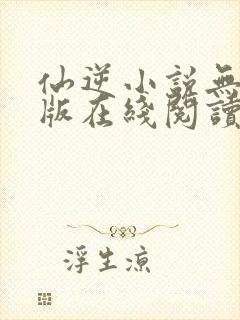 仙逆小説無
版在綫閱讀
浮生涼